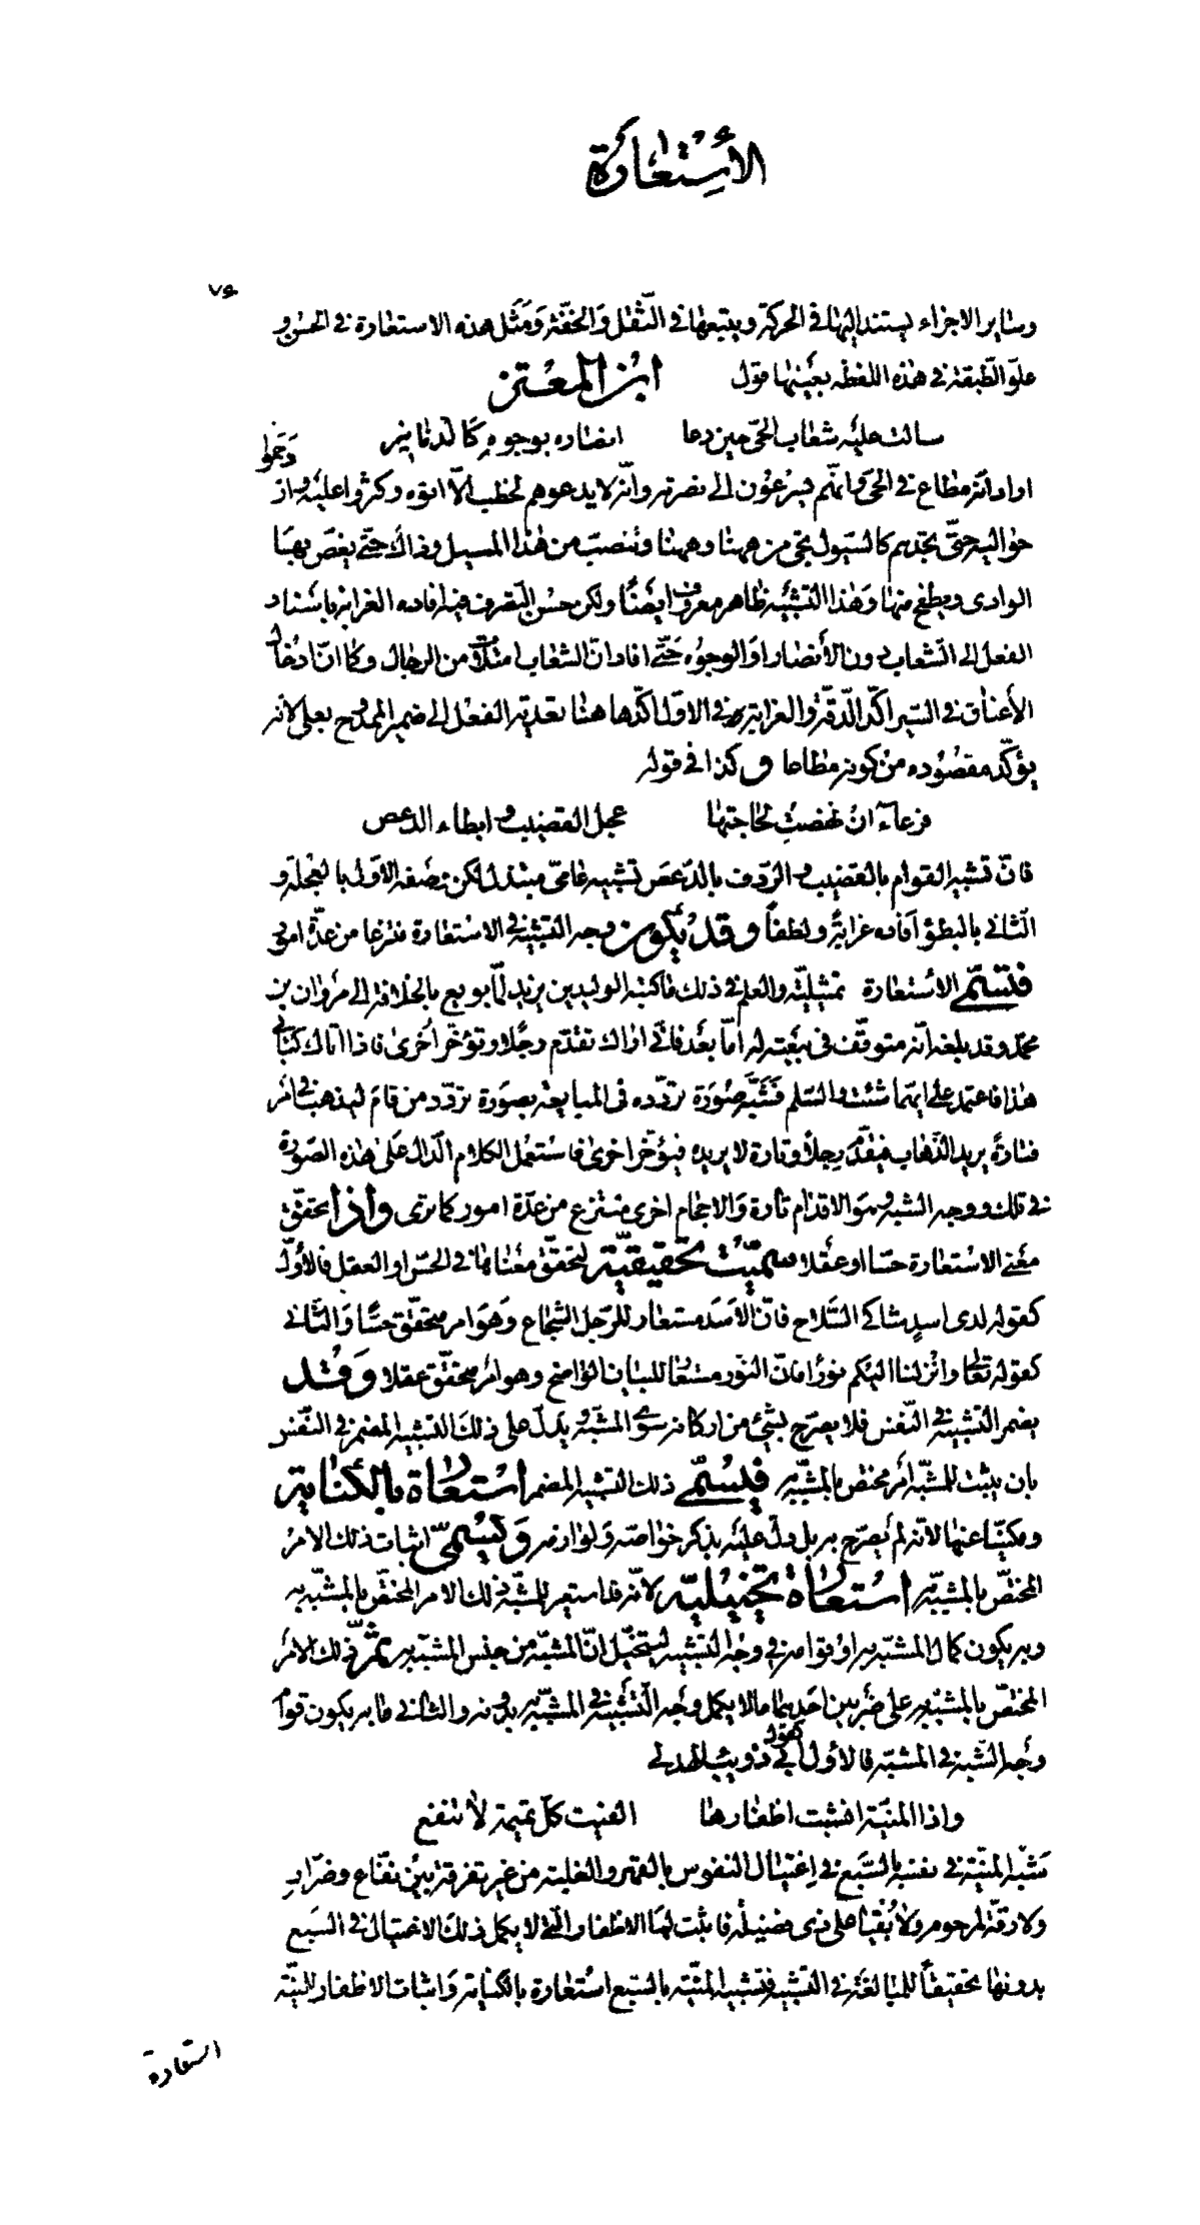 الأستعارة
٧٤
وساير الاجزاء يستند اليها في الحركة ويتبعها في الثقل والخفة ومثل هذه الاستعارة في الحسن و
علو الطبقة في هذه اللفظة بعينها قول ابن المعتز
سالت عليه شعاب الحي حين دعا انصاره بوجوه كالدنانير
اراد انه مطاع في الحي وانهم يسرعون الى نصرته وانه لا يدعوهم لخطب الا اتوه وكثروا عليه وازدحموا
حواليه حتى تجدهم كالسيول تجئ من ههنا وههنا وتنصب من هذا المسيل وذاك حتى يغص بها
الوادى ويطفح منها وهذا التشبيه ظاهر معروف ايضًا ولكن حسن التصرف فيه افاده الغرابة باسناد
الفعل الى الشعاب دون الأنصار او الوجوه حتى افاد ان الشعاب امتلأت من الرجال وكما ان ادخال
الأعناق في السير اكد الدقة والغرابة في الاول اكدها هنا تعدية الفعل الى ضمير الممدوح بعلى لانه
يؤكد مقصوده من كونه مطاعا وكذا في قوله
فرعاء ان نهضت لحاجتها عجل القضيب وابطاء الدعص
فان تشبيه القوام بالقضيب والردف بالدعص تشبيه عامي مبتذل لكن وصفه الاول بالعجلة و
الثاني بالبطؤ أفاده غرابةً ولطفاً وقد يكون وجه التشبيه في الاستعارة منتزعا من عدة امور
فتسمى الأستعارة تمثيلية والعلم في ذلك ماكتبه الوليد بن يزيد لما بويع بالخلافة الى مروان بن
محمد وقد بلغه انه متوقف في بيعته له اما بعد فاني اراك تقدم رجلا وتؤخر أخرى فاذا اتاك كتابي
هذا فاعتمد على ايهما شئت والسلم فشبه صورة تردده في المبايعة بصورة تردد من قام ليذهب في امر
فتارةً يريد الذهاب فيقدم رجلاً وتارة لا يريده فيؤخر اخرى فاستعمل الكلام الدال على هذه الصورة
في تلك ووجه الشبه وهو الاقدام تارة والاحجام اخرى منتزع من عدة امور كما ترى واذا تحقق
معنى الاستعارة حسا او عقلا سميت تحقيقية لتحقق معناها في الحس او العقل فالأول
كقوله لدى اسدٍ شاكى السلاح فان الاسد مستعار للرجل الشجاع وهو امر متحقق حسًا والثاني
كقوله تعالى وانزلنا اليكم نورًا فان النور مستعار للبيان الواضح وهو امر متحقق عقلا وقد
يضمر التشبيه في النفس فلا يصرح بشئ من اركانه سوى المشبه ويدل على ذلك التشبيه المضمر في النفس
بان يثبت للمشبه امر مختص بالمشبه به فيسمى ذلك التشبيه المضمر استعارة بالكناية
ومكنيا عنها لانه لم يصرح به بل دل عليه بذكر خواصه ولوازمه ويسمى اثبات ذلك الامر
المختص بالمشبه به استعارة تخييلية لانه قد استعير للمشبه ذلك الامر المختص بالمشبه به
وبه يكون كمال المشبه به او قوامه في وجه التشبيه ليتخيل ان المشبه من جنس المشبه به ثم ذلك الامر
المختص بالمشبه به على ضربين احدهما ما لا يكمل وجه التشبيه في المشبه به بدونه والثاني ما به يكون قوام
وجه الشبه في المشبه به فالاول كقول ابي ذويب الهذلي
واذا المنية انشبت اظفارها الفيت كل تميمة لا تنفع
شبه المنية في نفسه بالسبع في اغتيال النفوس بالقهر والغلبة من غير تفرقة بين نفاع وضرار
ولا رقة لمرحوم ولا بقيا على ذى فضيلة فاثبت لها الاظفار التي لا يكمل ذلك الاغتيال في السبع
بدونها تحقيقاً للمبالغة في التشبيه فتشبيه المنية بالسبع استعارة بالكناية واثبات الاظفار للمنية
استعارة